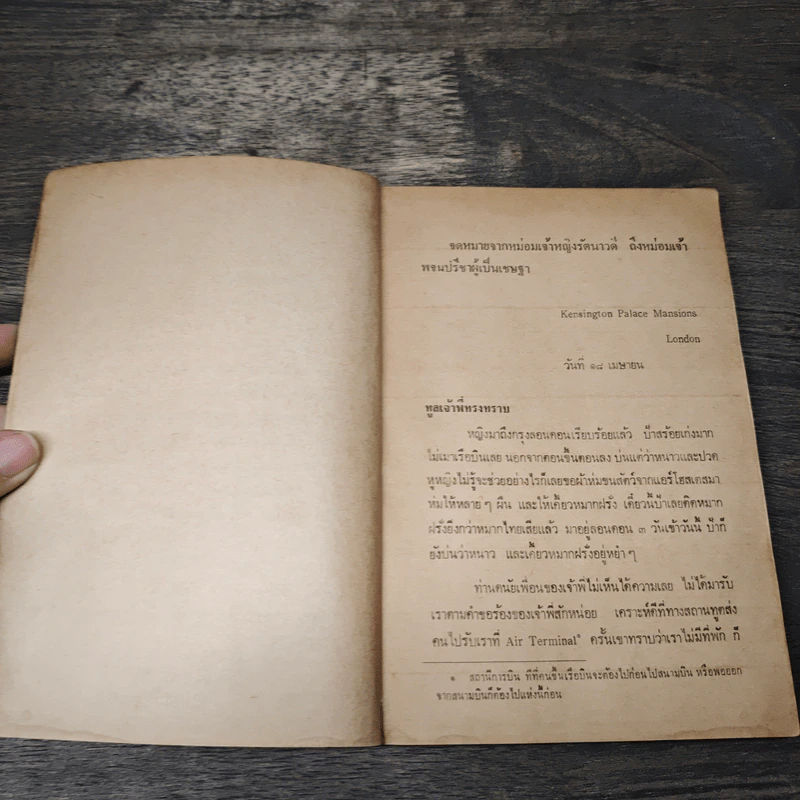 จดหมายจากหม่อมเจ้าหญิงรัตนาวดี ถึงหม่อมเจ้า
พจนปรีชาผู้เป็นเชษฐา
Kensington Palace Mansions
London
วันที่ ๑๘ เมษายน
ทูลเจ้าพี่ทรงทราบ
หญิงมาถึงกรุงลอนดอนเรียบร้อยแล้ว ป้าสร้อยเก่งมาก
ไม่เมาเรือบินเลย นอกจากตอนขึ้นตอนลง บ่นแต่ว่าหนาวและปวด
หูหญิงไม่รู้จะช่วยอย่างไรก็เลยขอผ้าห่มขนสัตว์จากแอร์โฮสเตสมา
ห่มให้หลาย ๆ ผืน และให้เคี้ยวหมากฝรั่ง เดี๋ยวนี้ป้าเลยติดหมาก
ฝรั่งยิ่งกว่าหมากไทยเสียแล้ว มาอยู่ลอนดอน ๓ วันเข้าวันนี้ ป้าก็
ยังบ่นว่าหนาว และเคี้ยวหมากฝรั่งอยู่หยำ ๆ
ท่านดนัยเพื่อนของเจ้าพี่ไม่เห็นได้ความเลย ไม่ได้มารับ
เราตามคำขอร้องของเจ้าพี่สักหน่อย เคราะห์ดีที่ทางสถานทูตส่ง
คนไปรับเราที่ Air Terminal* ครั้นเขาทราบว่าเราไม่มีที่พัก ก็
๑ สถานีการบิน ที่ที่คนขึ้นเรือบินจะต้องไปก่อนไปสนามบิน หรือพอออก
จากสนามบินก็ต้องไปแห่งนี้ก่อน